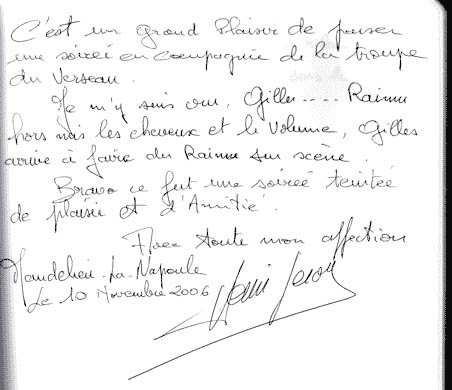 C'est un grand Plaisir de passer
une soirée en compagnie de la troupe
du Verseau.
Je m'y suis cru, Gilles .... Raimu
hors mis les cheveux et le Volume, Gilles
arrive à faire du Raimu sur scène.
Bravo ce fut une soirée teintée
de plaisir et d'Amitié.
Avec toute mon affection
Mandelieu-La-Napoule
Le 10 Novembre 2006